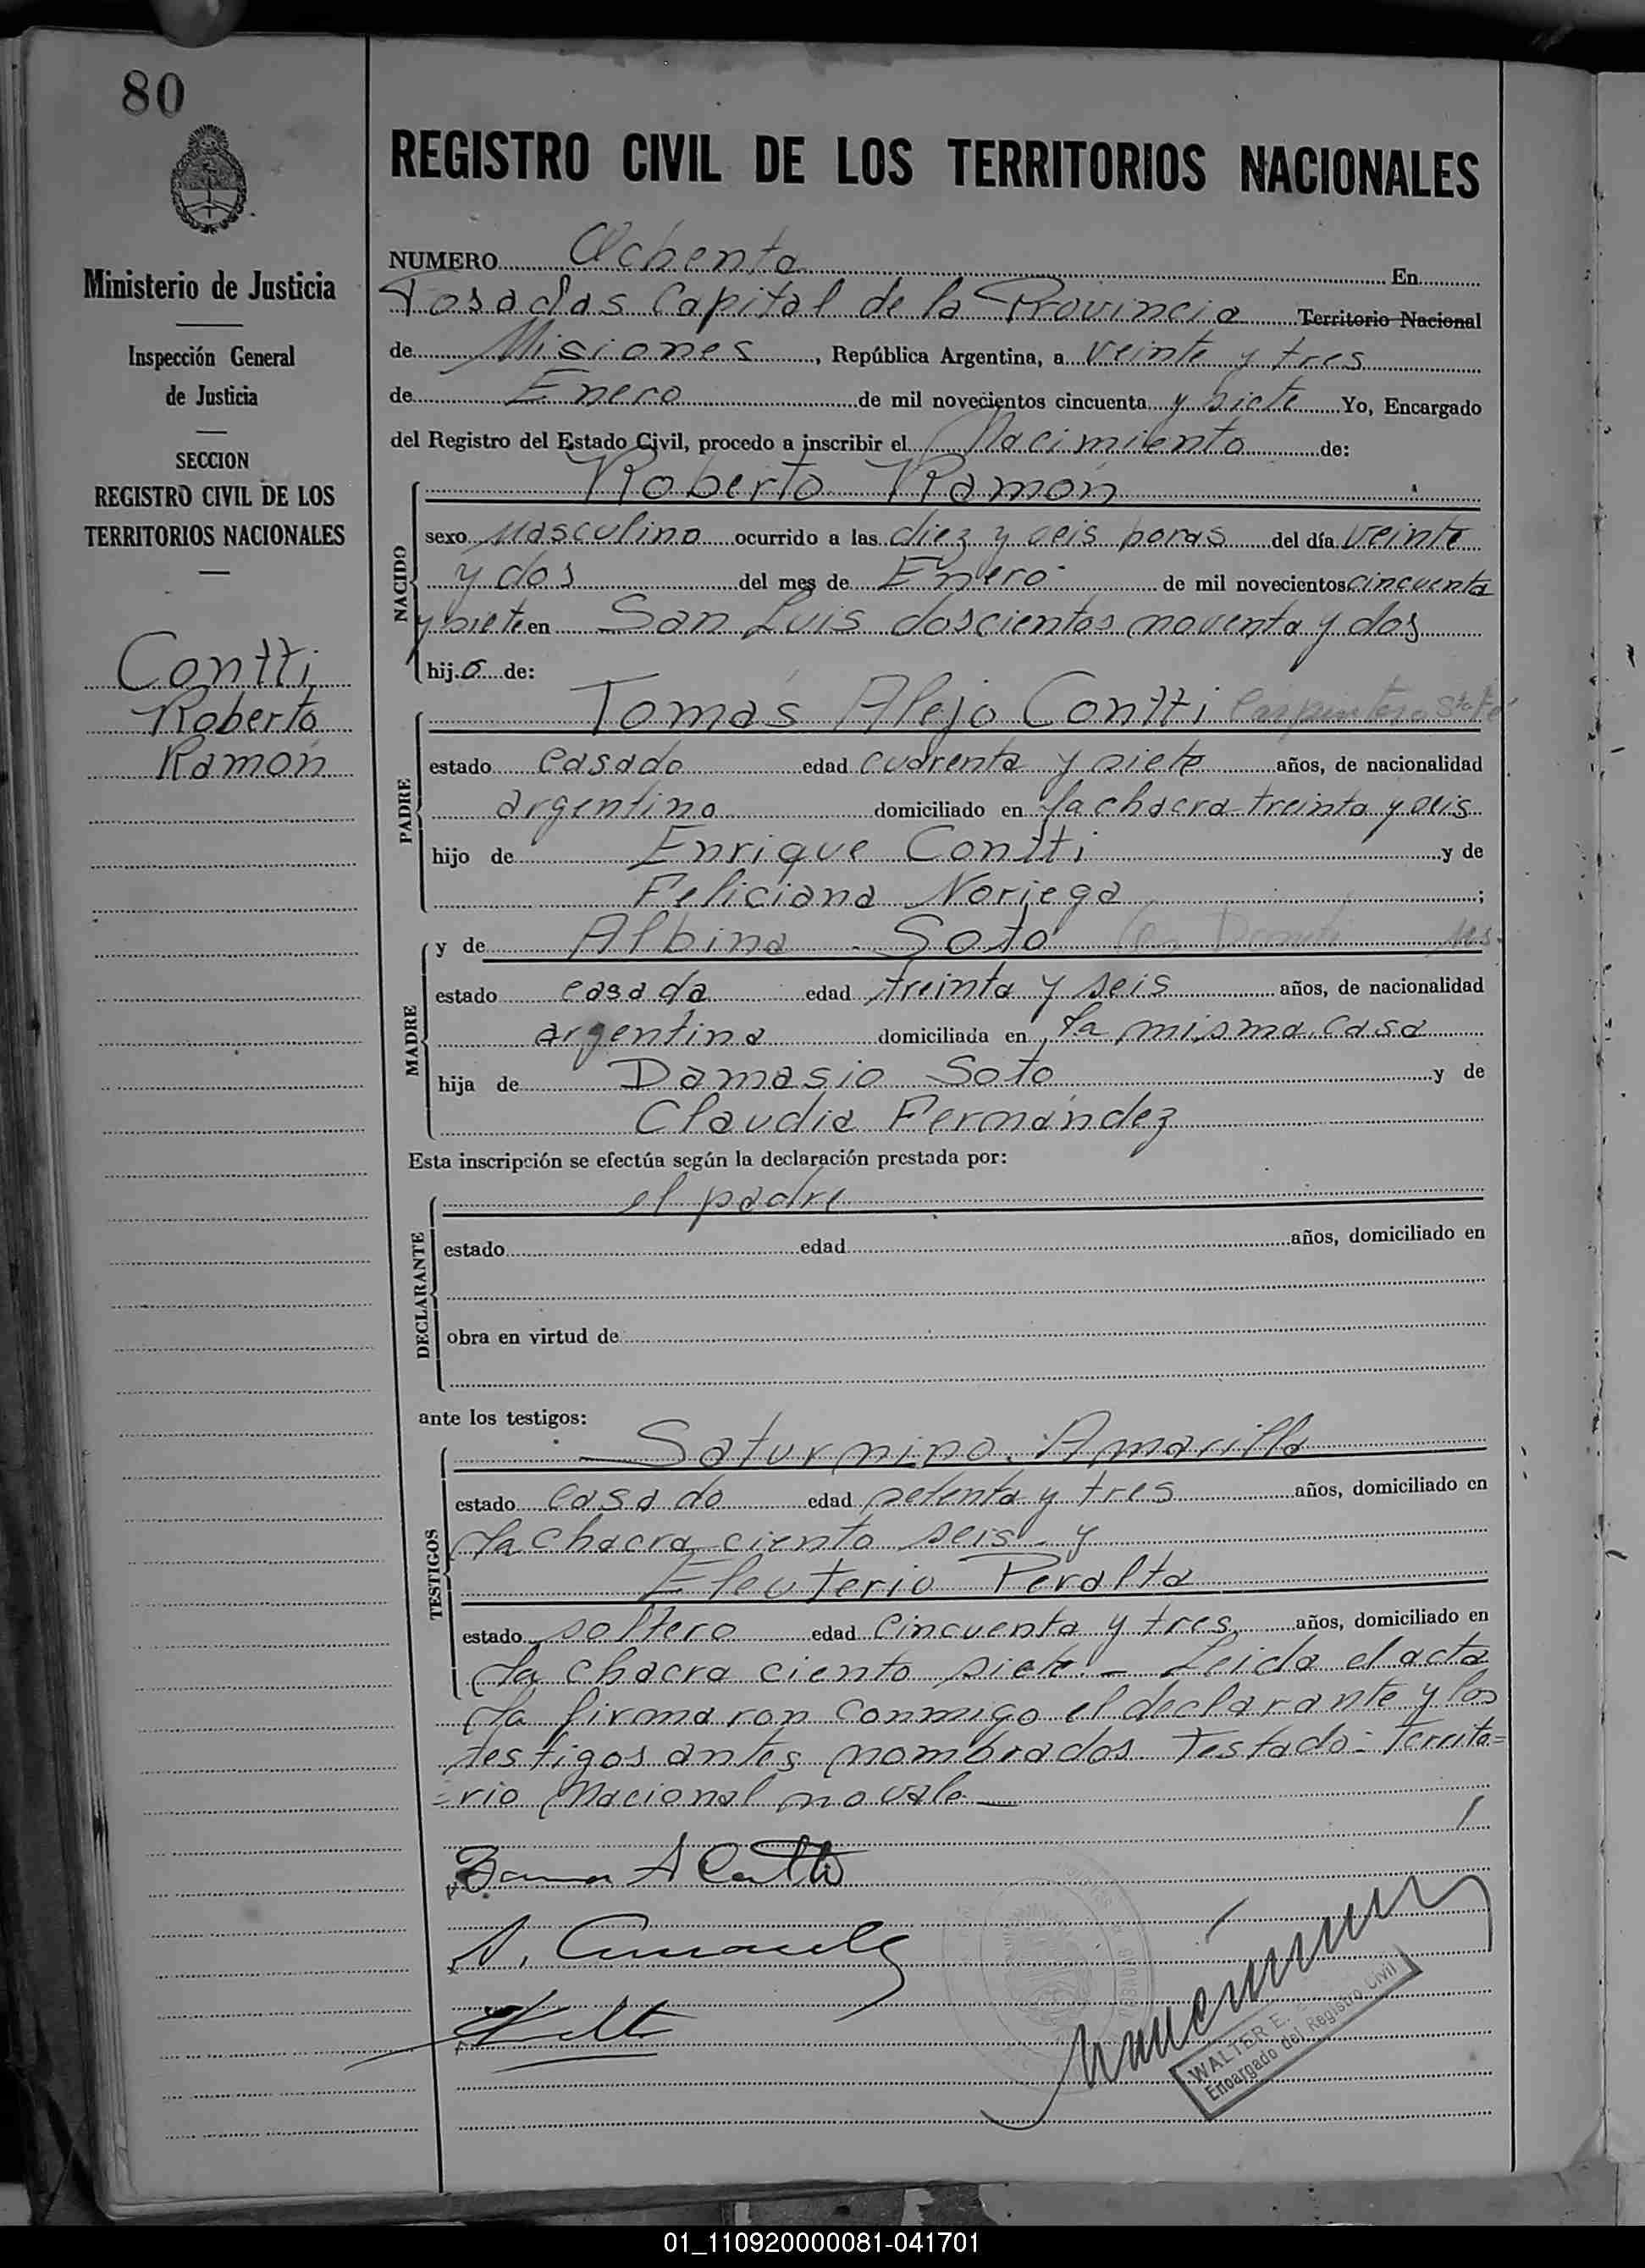 80
Ministerio de Justicia
Inspección General
de Justicia
SECCION
REGISTRO CIVIL DE LOS
TERRITORIOS NACIONALES
Contti
Roberto
Ramón
REGISTRO CIVIL DE LOS TERRITORIOS NACIONALES
NUMERO Ochenta En
Posadas Capital de la Provincia Territorio Nacional
de Misiones, República Argentina, a veinte y tres
de Enero de mil novecientos cincuenta y siete Yo, Encargado
del Registro del Estado Civil, procedo a inscribir el Nacimiento de:
NACIDO
Roberto Ramón
sexo Masculino ocurrido a las diez y seis horas del día veinte
y dos del mes de Enero de mil novecientos cincuenta
y siete en San Luis doscientos noventa y dos
hijo de:
PADRE
Tomás Alejo Contti carpintero Sta Fé
estado casado edad cuarenta y siete años, de nacionalidad
argentino domiciliado en la chacra treinta y seis
hijo de Enrique Contti y de
Feliciana Noriega;
MADRE
y de Albina Soto
estado casada edad treinta y seis años, de nacionalidad
argentina domiciliada en la misma casa
hija de Damasio Soto y de
Claudia Fernández
Esta inscripción se efectúa según la declaración prestada por:
DECLARANTE
el padre
estado edad años, domiciliado en
obra en virtud de
ante los testigos:
TESTIGOS
Saturnino Amarilla
estado casado edad setenta y tres años, domiciliado en
la chacra ciento seis y
Eleuterio Peralta
estado soltero edad cincuenta y tres años, domiciliado en
la chacra ciento siete.- Leida el acta
la firmaron conmigo el declarante y los
testigos antes nombrados. Testado: Territo=
=rio Nacional no vale
WALTER E.
Encargado del Registro Civil
01_110920000081-041701